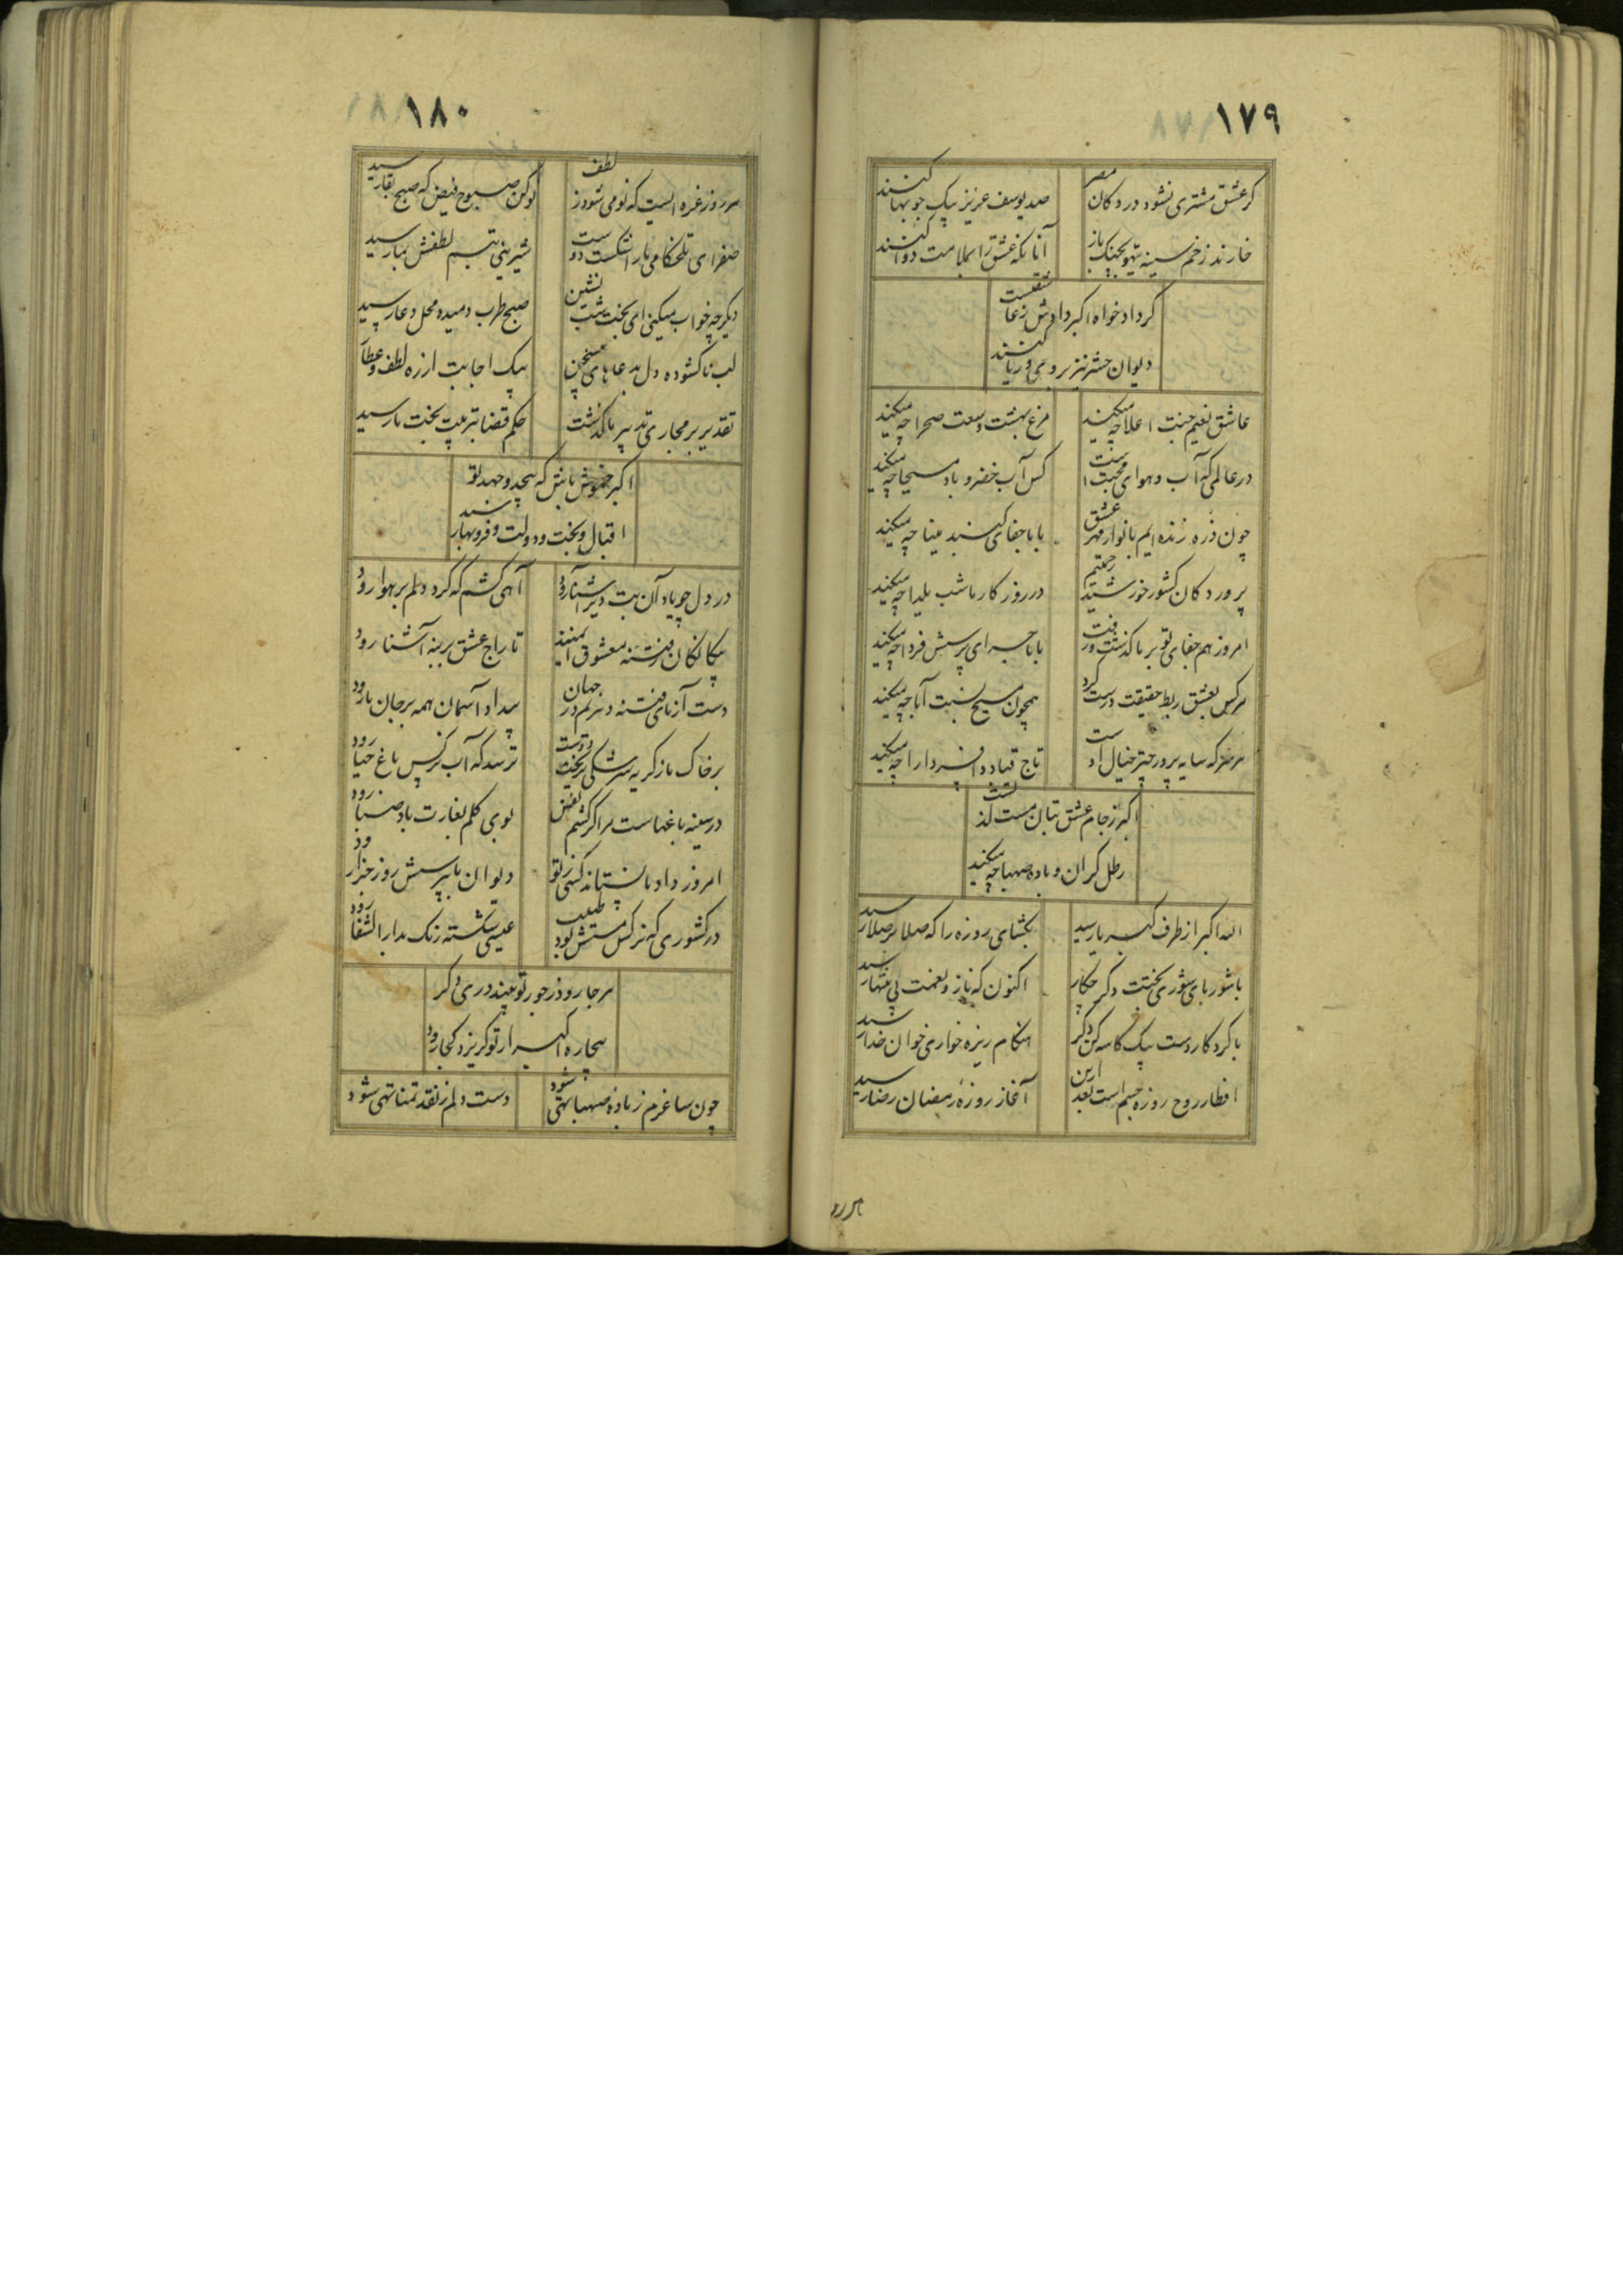 ۱۷۹
کر عشق مشتری نشود در دکان مصر
صد یوسف عزیز بیک جو بها کنند
خارند زخم سینه
آنانکه عشق را بملامت دوا کنند
کر داد خواه اکبر دادش
دیوان حشر نیز بروی کنند
عاشق نعیم جنت اعلا چه میکند
مرغ بهشت وسعت صحرا چه میکند
در عالمی که آب و هوای محبت است
کس آب خضر و باد مسیحا چه میکند
چون ذره زنده ایم بانوار مهر عشق
باما جفای کنبد مینا چه میکند
پرورد کان کشور خورشید
در روز کار ما شب یلدا چه میکند
امروز هم جفای تو بر ما کذشت و رفت
باما جرای پرسش فردا چه میکند
هرکس بعشق ربط حقیقت درست کرد
همچون مسیح نسبت آبا چه میکند
هر سر که سایه پرور چتر خیال اوست
تاج قباد و افسر دارا چه میکند
اکبر ز جام عشق بتان مست
رطل کران و باده صهبا چه میکند
الله اکبر از طرف کبریا رسید
بکشای روزه را که صلا بر صلا رسید
با شوربای شوری بختت دکر چکار
اکنون که ناز و نعمت بی منتها رسید
با کرد کار دست بیک کاسه کن دکر
هنکام ریزه خواری خوان خدا رسید
افطار روح روزه جسم است بعد ازین
آغاز روزهٔ رمضان رضا رسید
هر روز
۱۸۰
هر روز غره ایست که نو می شود ز لطف
نو کن صبوح فیض که صبح بقا رسید
صفرای تلخکامی ما را شکست
شیرینی تبسم لطفش بما رسید
دیکر چه خواب میکنی ای بخت شب نشین
صبح طرب دمید و محل دعا رسید
لب ناکشوده دل بدعاهای
پیک اجابت از ره لطف و عطا
تقدیر بر مجاری تدبیر ما کذشت
حکم قضا بتربیت بخت ما رسید
اکبر خموش باش که بیجد و جهد تو
اقبال و بخت و دولت و فر و بها رسید
در دل چو یاد آن بت دیر آشنا رود
آهی کشم که کرد دلم بر هوا رود
بیکانکان فتنه معشوق
تاراج عشق بر بنه آشنا رود
دست آزمای فتنه و نرکم در جهان
بیداد آسمان همه بر جان ما رود
بر خاک ما ز کریه سرشکی بریخت دوست
ترسد که آب نرکس باغ حیا رود
در سینه باغهاست مرا کر کشم نفس
بوی کلم بغارت باد صبا رود
امروز داد ما نستاند کسی ز تو
دیوان ما بپرسش روز جزا رود
در کشوری که نرکس مستش بود طبیب
عیسی شکسته رنک بدار الشفا رود
هر جا رود ز جور تو بیند دری دکر
بیچاره اکبر از تو کریزد کجا رود
چون ساغرم ز باده صهبا تهی شود
دست دلم ز نقد تمنا تهی شود